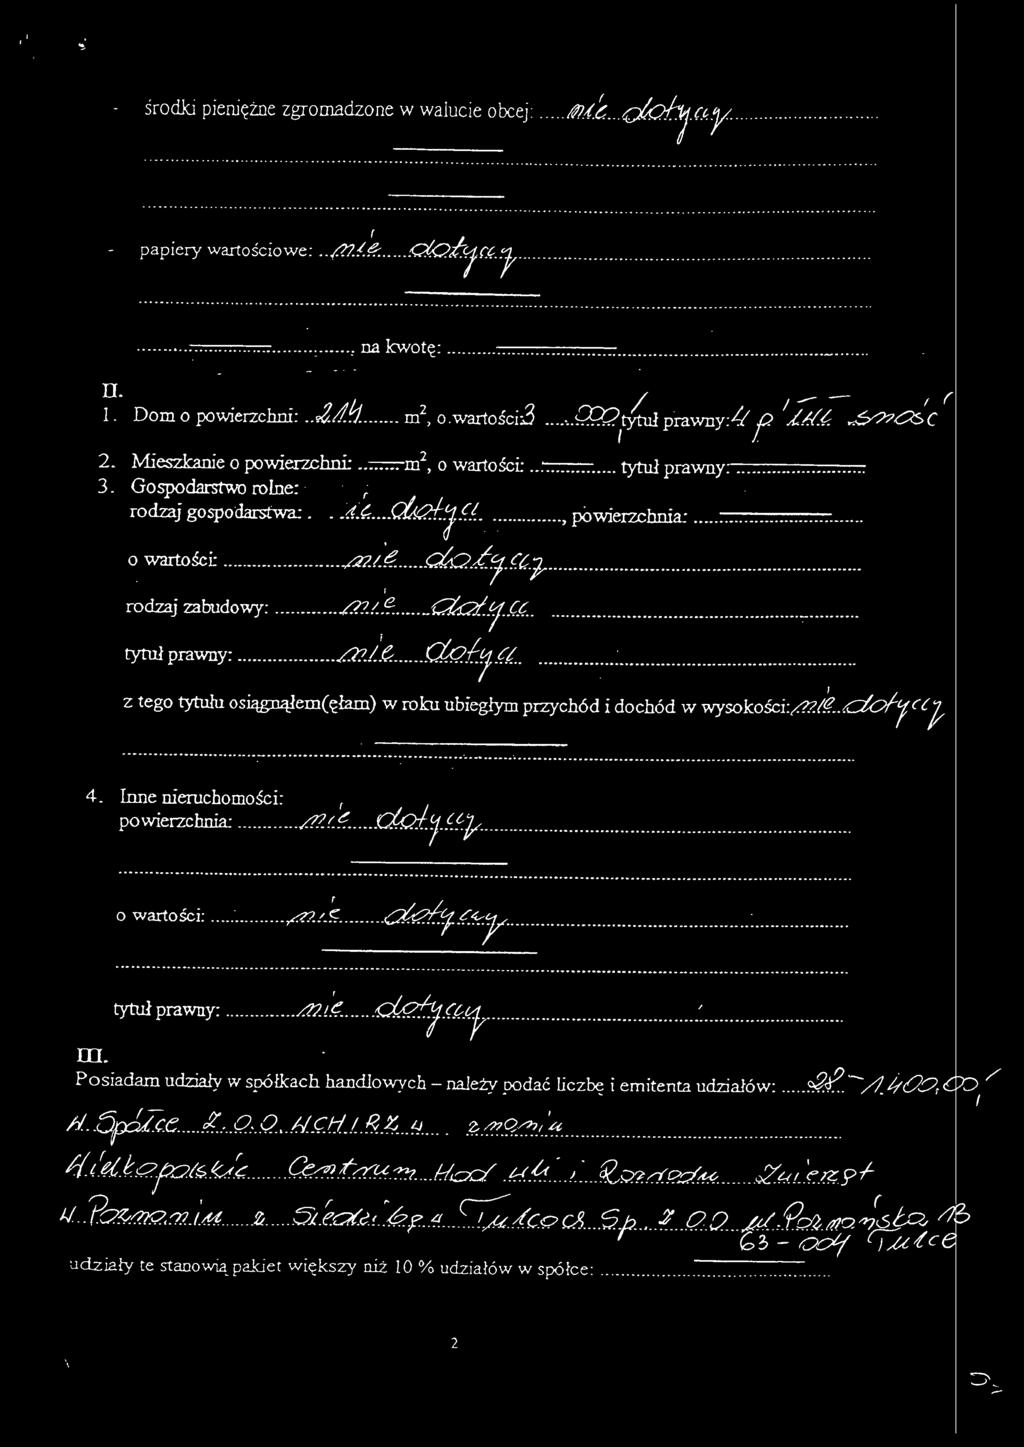 - środki pieniężne zgromadzone w walucie obcej: nie dotyczy
- papiery wartościowe: nie dotyczy
na kwotę:
II.
1. Dom o powierzchni: 214 m², o wartości: 3 000, tytuł prawny: sność
2. Mieszkanie o powierzchni: m², o wartości: tytuł prawny:
3. Gospodarstwo rolne:
rodzaj gospodarstwa: ie dotycz, powierzchnia:
o wartości: nie dotyczy
rodzaj zabudowy: nie dotycz
tytuł prawny: nie dotycz
z tego tytułu osiągnąłem(ęłam) w roku ubiegłym przychód i dochód w wysokości: nie dotyczy
4. Inne nieruchomości:
powierzchnia: nie dotyczy
o wartości: nie dotyczy
tytuł prawny: nie dotyczy
III.
Posiadam udziały w spółkach handlowych – należy podać liczbę i emitenta udziałów: 28 - 1.400,00
W Spółce Z.O.O. WCHIRZ w
Wielkopolskie Centrum Hod i Rozrodu Zwierząt
W Poznaniu z Siedzibą w Tulcach Sp. Z O.O ul. Poznańska 13
63-004 Tulce
udziały te stanowią pakiet większy niż 10 % udziałów w spółce:
2